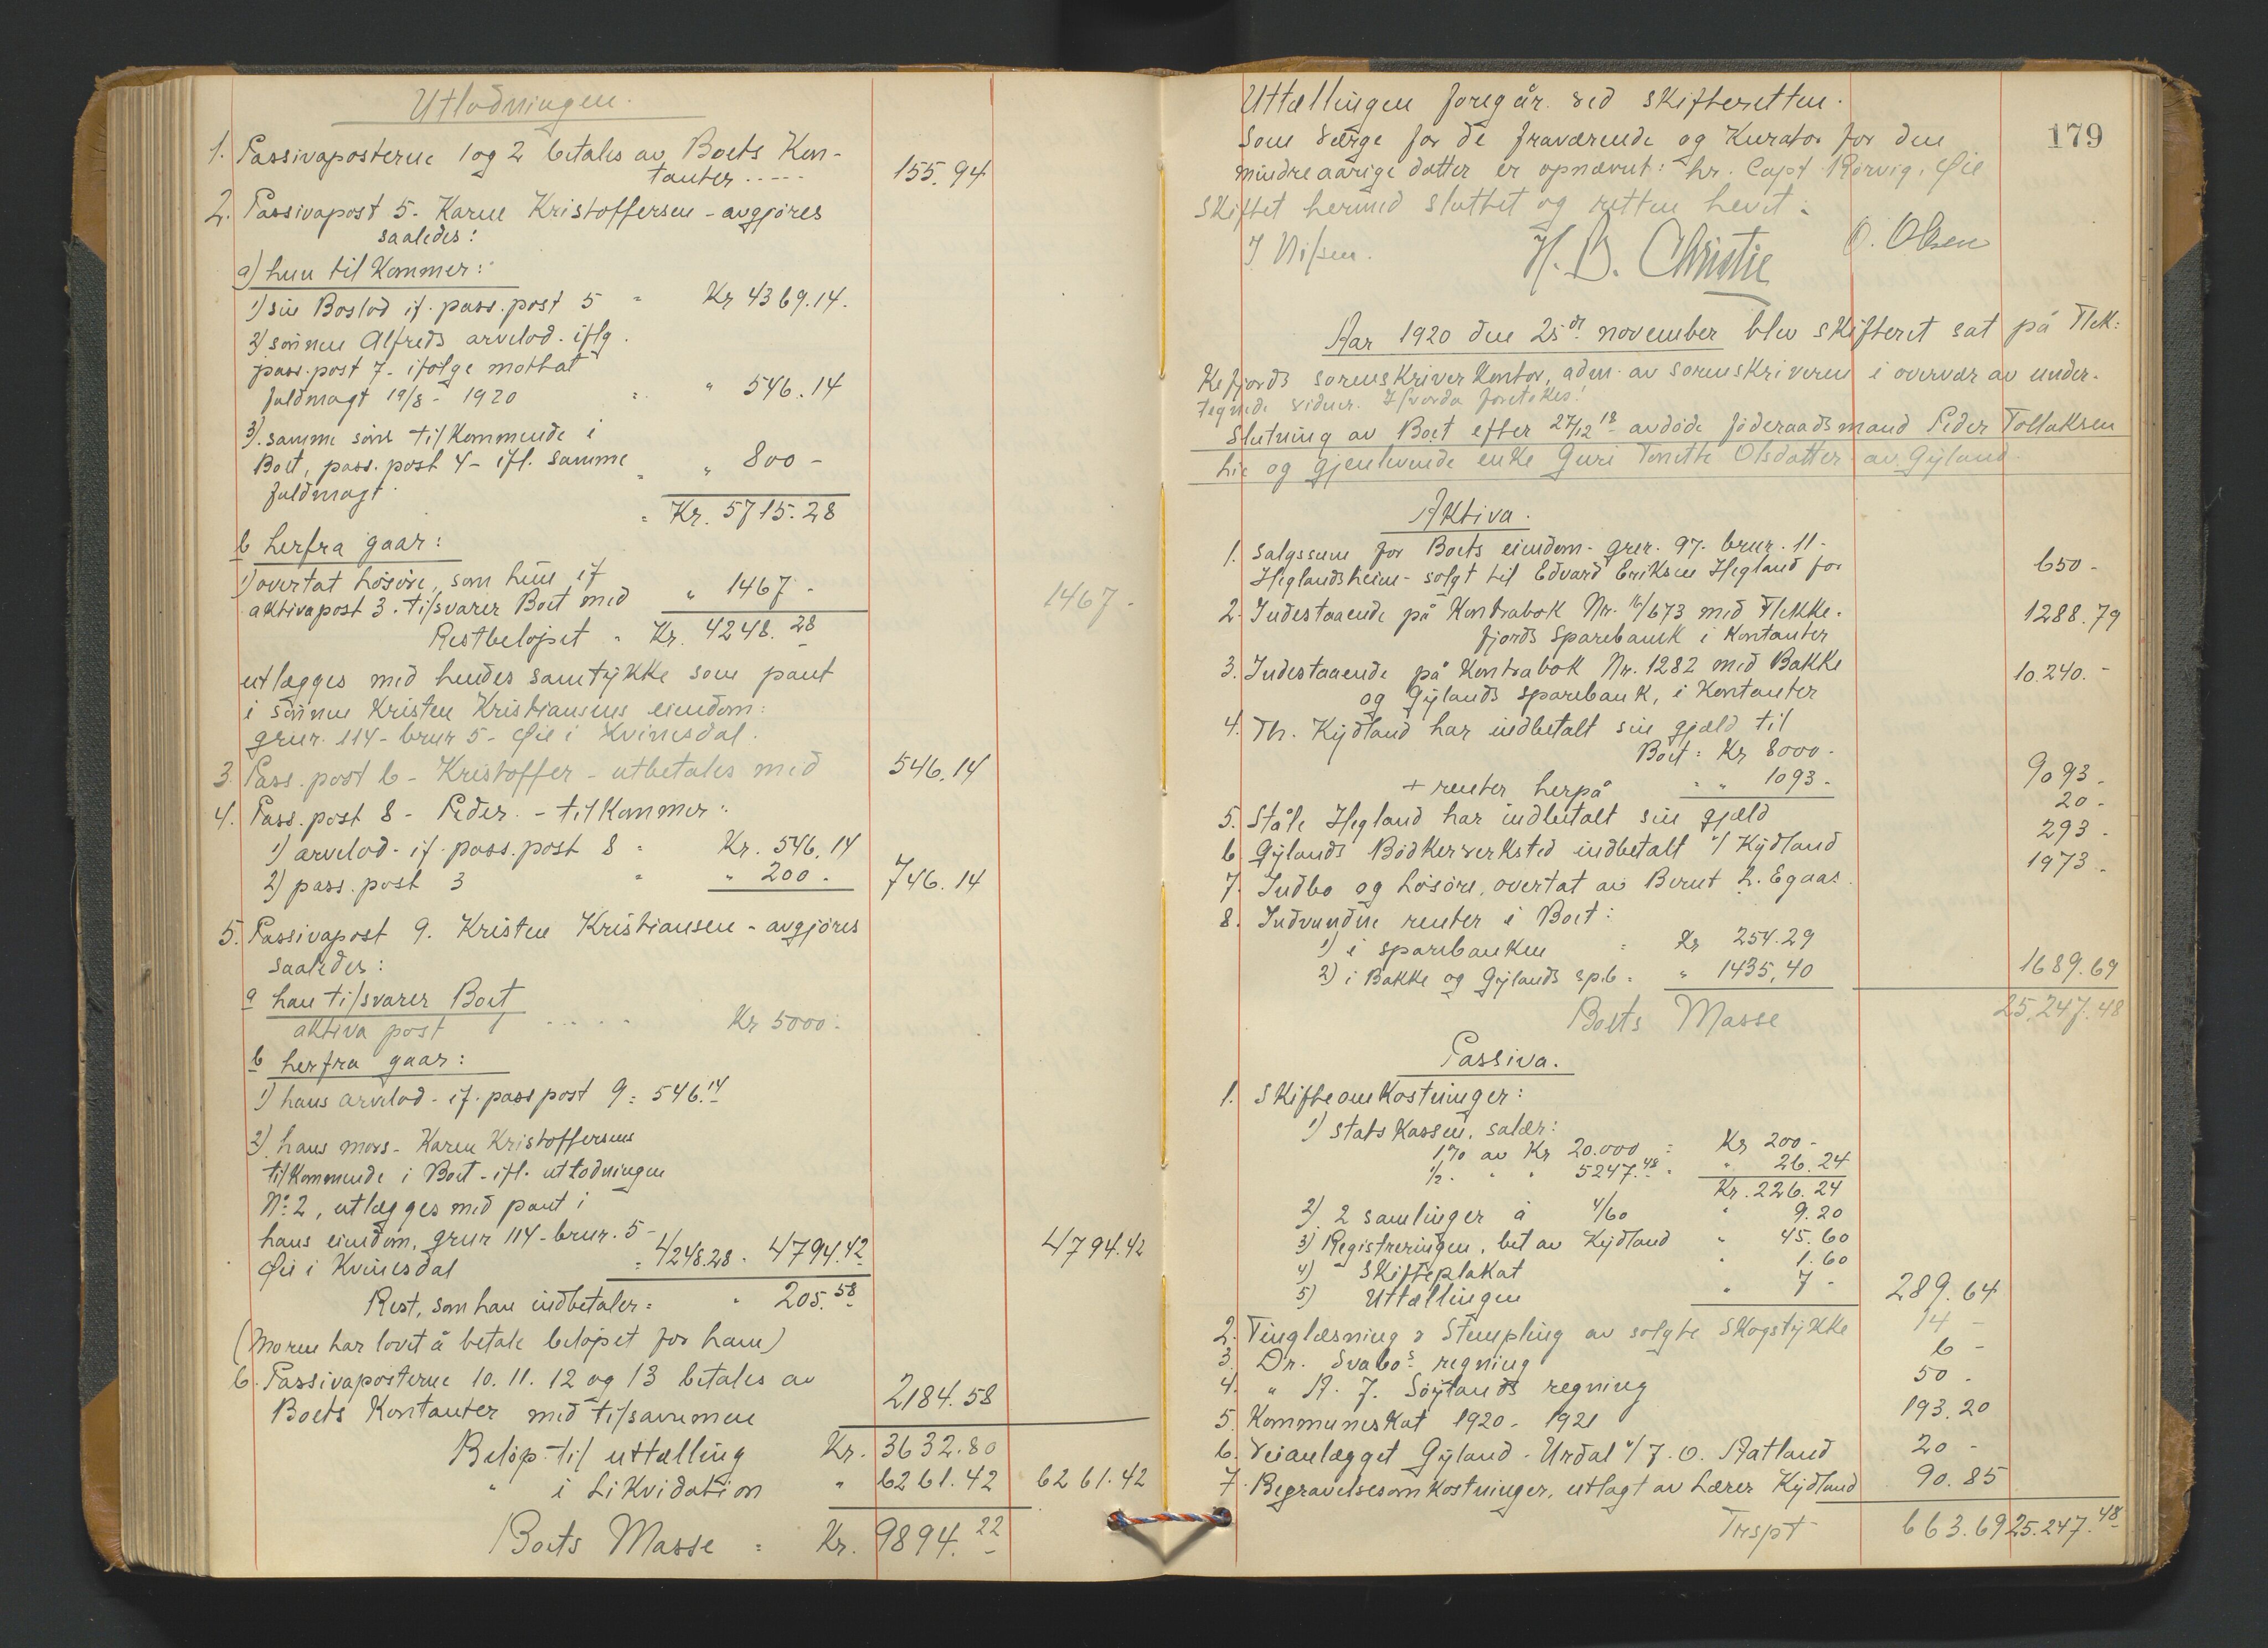 Utlodningen.
1. Passivaposterne 1 og 2 betales av Boets Kon-
tanter ..... 155.94
2. Passivapost 5. Karne Kristoffersen - avgjöres
saaledes:
a) hun tilkommer:
1) sin Boslod if. pass. post 5 = Kr 4369.14.
2) sönnen Alfreds arvelod. iflg.
pass. post 7. ifölge mottat
fuldmagt 19/8 - 1920 = " 546.14
3). samme söns tilkommende i
Boet, pass. post 4 - ifl. samme = " 800 -
fuldmagt.
= Kr. 5715.28
b herfra gaar:
1) overtat lösöre, som hun if
aktivapost 3. tilsvarer Boet med " 1467 - 1467 -
Restbelöpet = Kr. 4248.28
utlægges med hendes samtykke som pant
i sönnen Kristen Kristiansens eiendom:
grnr. 114 - brnr 5 - Öie i Kvinesdal.
3. Pass. post 6 - Kristoffer - utbetales med 546.14
4. Pass. post 8 - Peder. - tilkommer:
1) arvelod - if. pass. post 8 = Kr. 546.14
2) pass. post 3 = " 200 - 746.14
5. Passivapost 9. Kristen Kristiansen - avgjöres
saaledes:
a han tilsvarer Boet
aktiva post 1 ..... Kr 5000.
b herfra gaar:
1) hans arvelod - if. pass post 9 = 546.14
2) hans mors - Karen Kristoffersens
tilkommende i Boet - ifl. utlodningen
No 2, utlægges med pant i
hans eiendom, grnr 114 - brnr. 5 -
Öie i Kvinesdal = 4248.28 - 4794.42 4794.42
Rest, som han indbetaler = " 205.58
(Moren har lovet å betale belöpet for ham)
6. Passivaposterne 10. 11. 12 og 13 betales av
Boets Kontanter med tilsammen 2184.58
Belöp til uttælling Kr. 3632.80
" i Likvidation " 6261.42 6261.42
Boets Masse = Kr. 9894.22
179
Uttællingen foregår ved skifteretten.
Som værge for de fraværende og Kurator for den
mindreaarige datter er opnævnt: hr. Capt. Rörvig, Öie
Skiftet hermed sluttet og retten hevet.
J Nilsen. H. B. Christie O. Olsen
Aar 1920 den 25de november blev skifteret sat på Flek-
kefjords sorenskriverkontor, adm. av sorenskriveren i overvær av under-
tegnede vidner. Hvorda foretokes:
Slutning av Boet efter 27/12 18 avdöde föderaadsmand Peder Tollaksen
Lie og gjenlevende enke Guri Tonette Olsdatter av Gyland.
Aktiva.
1. Salgssum for Boets eiendom - grnr. 97. brnr. 11 -
Heglandsheim - solgt til Edvard Eriksen Hegland for 650 -
2. Indestaaende på Kontrabok Nr. 16/673 med Flekke-
fjords Sparebank i Kontanter 1288.79
3. Indestaaende på Kontrabok Nr. 1282 med Bakke
og Gylands sparebank, i Kontanter 10.240. -
4. Th. Kydland har indbetalt sin gjæld til
Boet = Kr 8000 -
+ renter herpå = " 1093 - 9093 -
5. Ståle Hegland har indbetalt sin gjæld 20 -
6 Gylands Bödkerverksted indbetalt v/ Kydland 293 -
7. Indbo og lösöre, overtat av Bernt L. Egaas. 1973 -
8. Indvundne renter i Boet:
1) i sparebanken = Kr 254.29
2) i Bakke og Gylands sp.b = " 1435,40 1689.69
Boets Masse 25,247.48
Passiva.
1. Skifteomkostninger:
1) statskassen, salær:
1% av Kr 20.000 = Kr 200 -
1/2 . " " 5247.48 = " 26.24
Kr. 226.24
2) 2 samlinger à 4/60 " 9.20
3) Registreringen, bet av Kydland " 45.60
4) Skifteplakat " 1.60
5) Uttællingen " 7 - 289.64
2. Tinglæsning & Stempling av solgte Skogstykke 14 -
3. Dr. Svabos regning 6 -
4. " A. J. Söylands regning 50 -
5. Kommuneskat 1920 - 1921 193.20
6. Veianlægget Gyland - Urdal v/ J. O. Aatland 20 -
7. Begravelsesomkostninger, utlagt av Lærer Kydland 90.85
Trspt 663.69 25.247.48